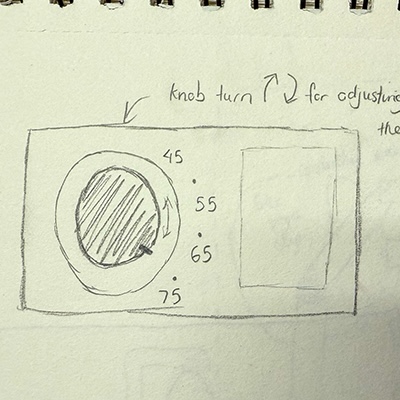 knob turn for adjusting
the
45
55
65
75